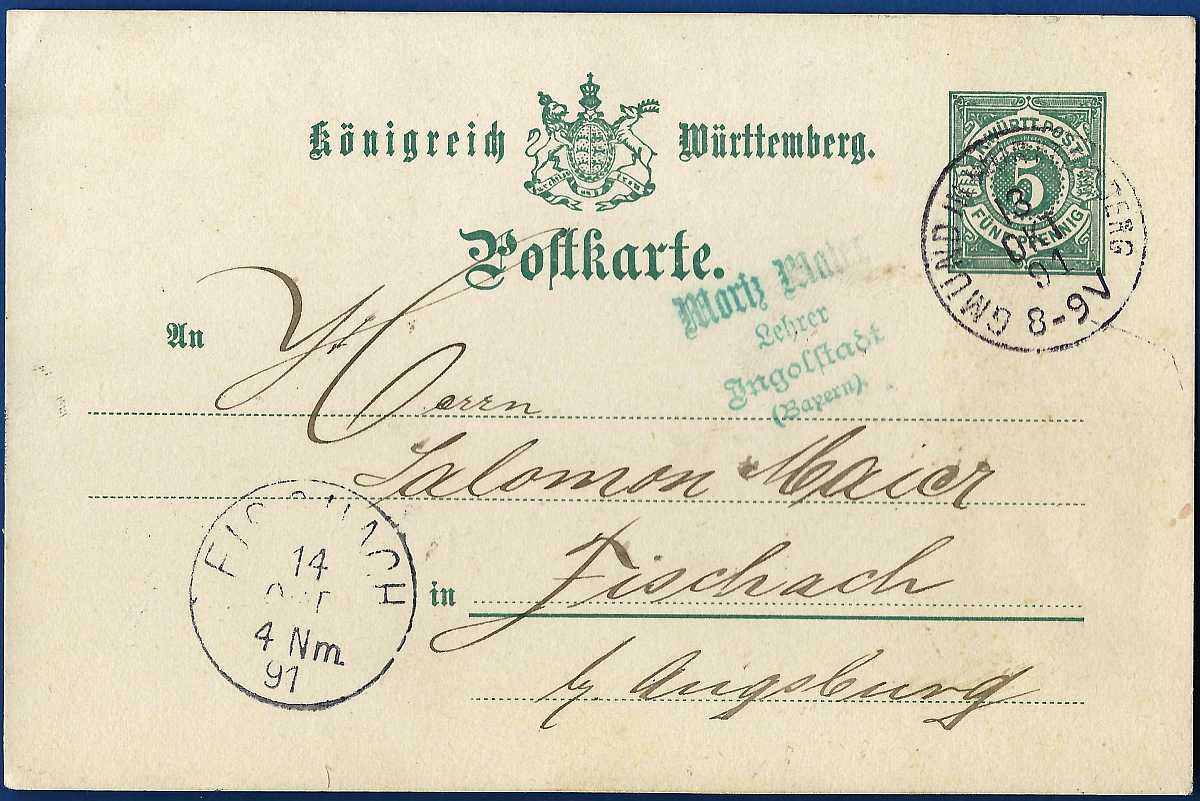 Königreich Württemberg.
Furchtlos und trew
Postkarte.
K. WÜRTT. POST
5
FÜNF PFENNIG
GMÜND
13
OKT
91
8-9V
Moriz
Lehrer
Ingolstadt
(Bayern).
An
Herrn
Salomon Maier
in Fischach
b/ Augsburg
FISCHACH
14
OKT
4 Nm.
91